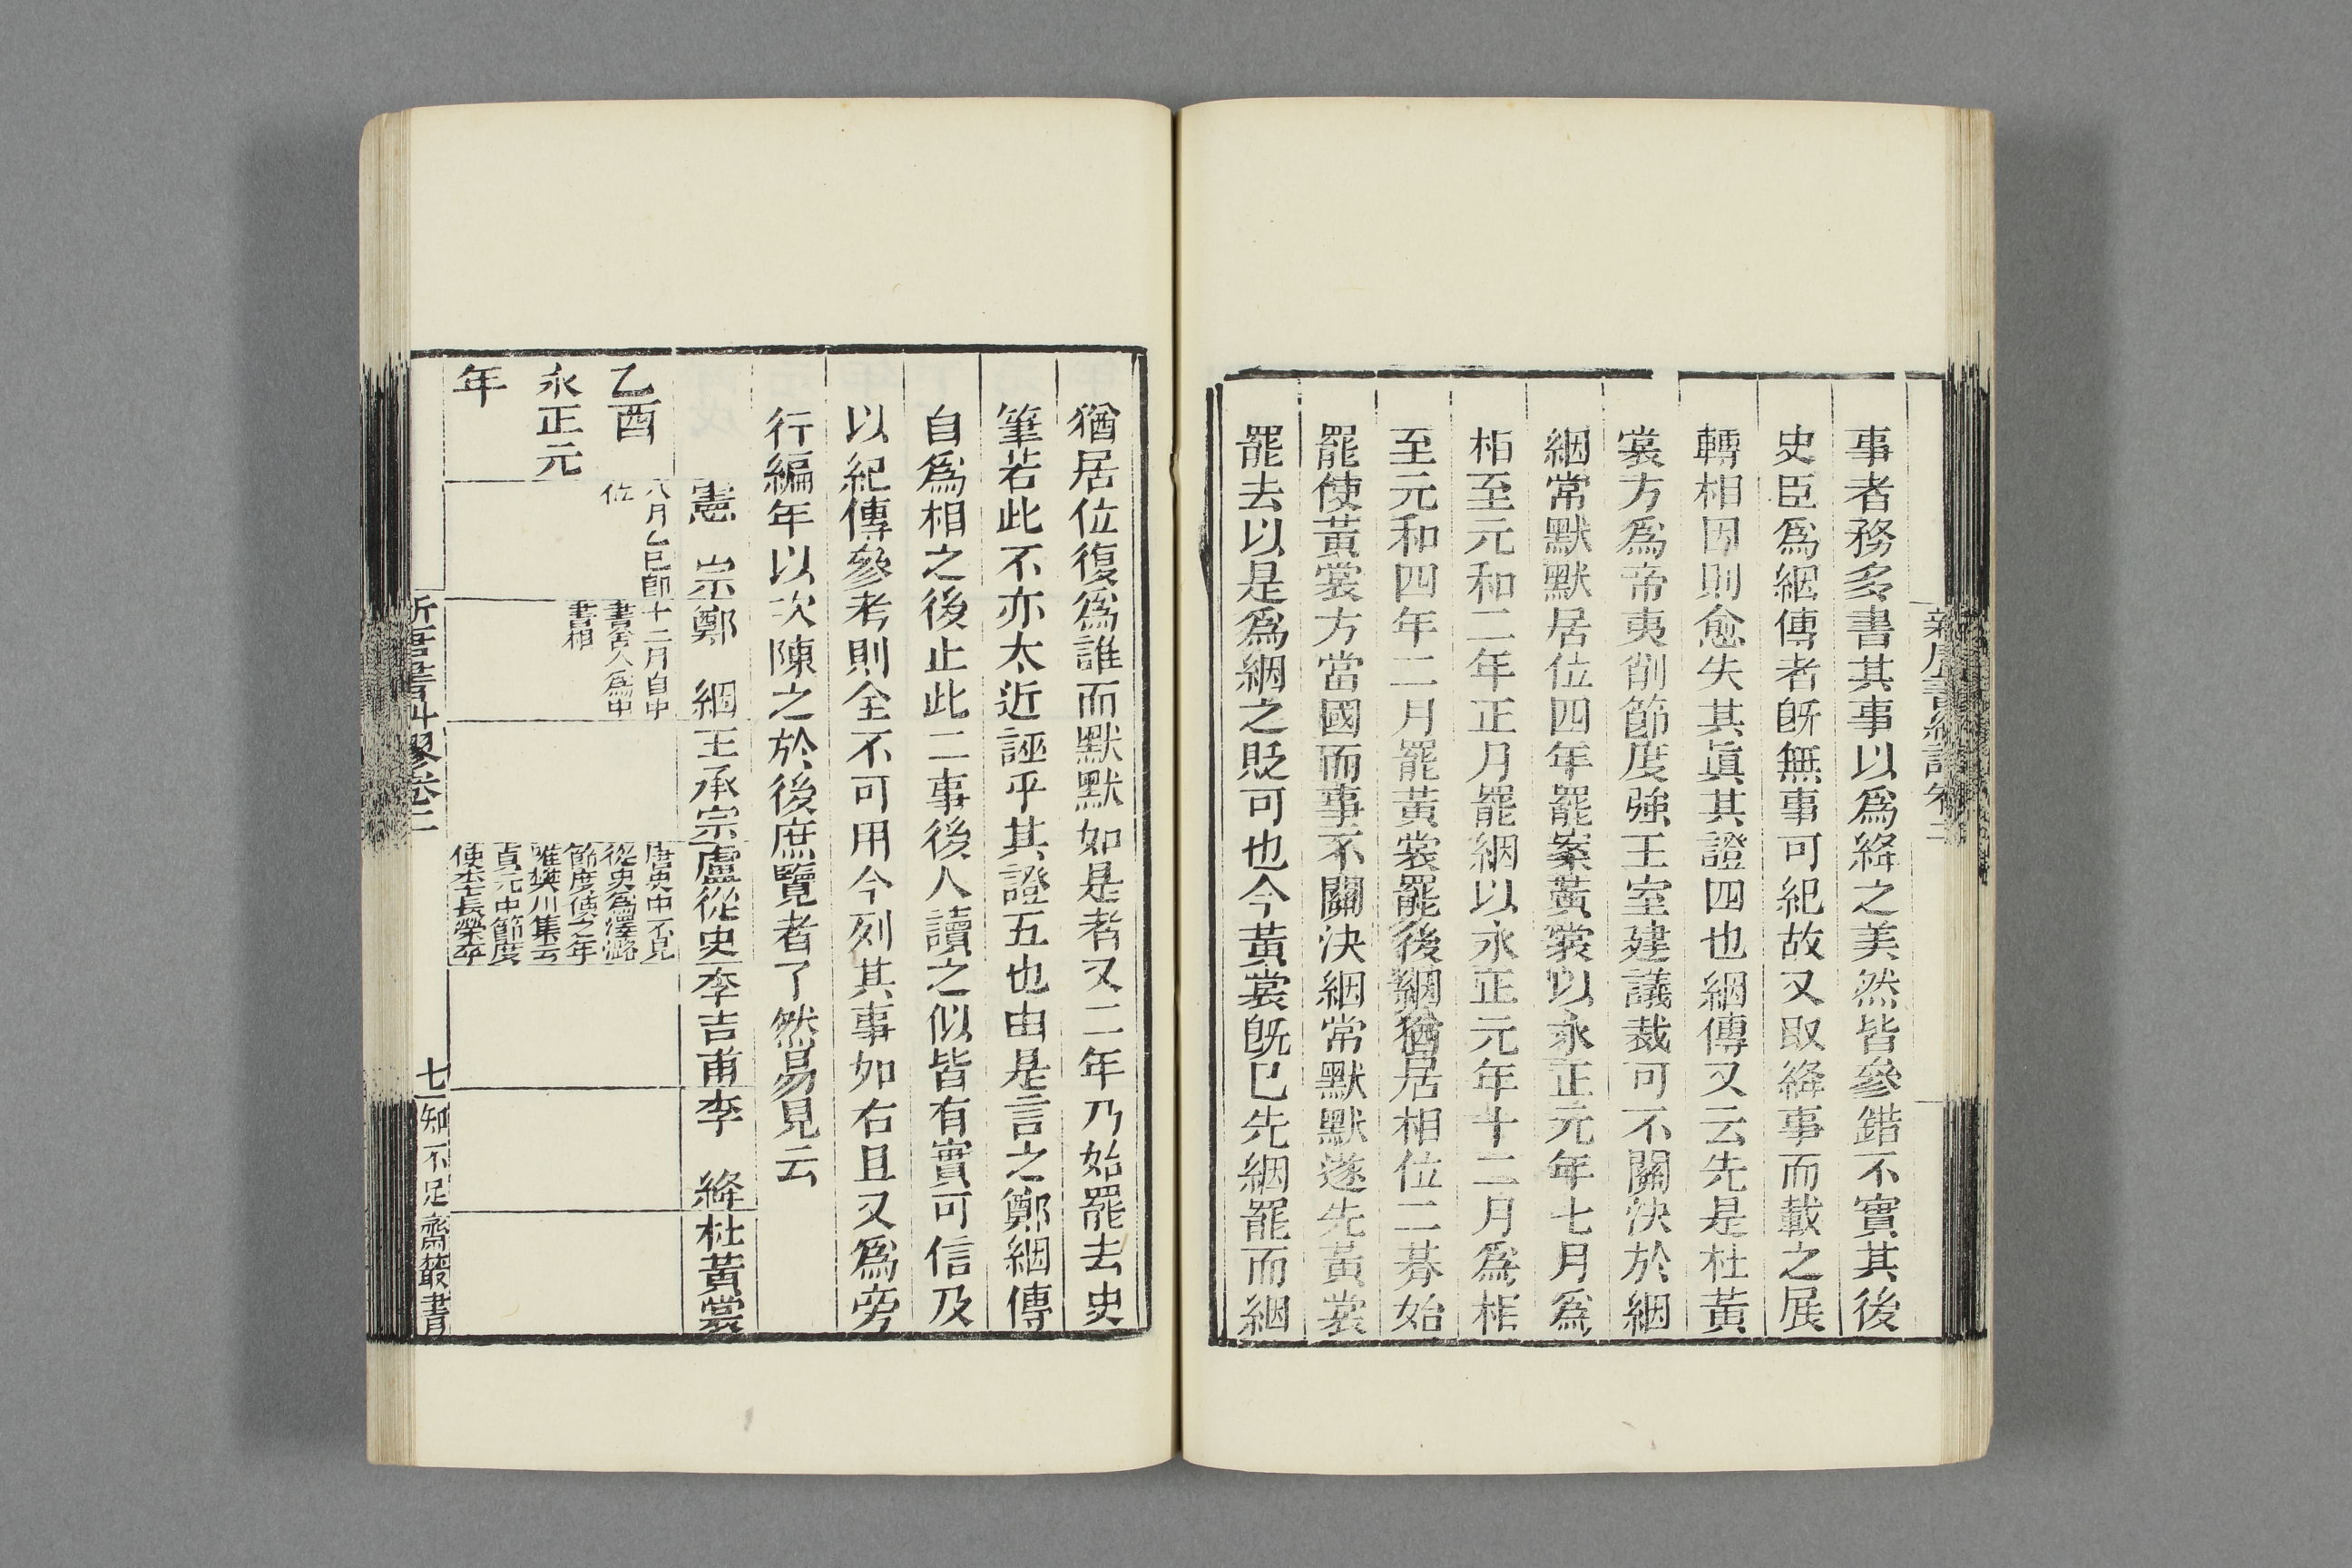 事者務多書其事以爲絳之美然皆參錯不實其後
史臣爲絪傳者旣無事可紀故又取絳事而載之展
轉相因則愈失其眞其證四也絪傳又云先是杜黃
裳方爲帝夷削節度強王室建議裁可不關決於絪
絪常默默居位四年罷案黃裳以永正元年七月爲
相至元和二年正月罷絪以永正元年十二月爲相
至元和四年二月罷黃裳罷後絪猶居相位二朞始
罷使黃裳方當國而事不關決絪常默默遂先黃裳
罷去以是爲絪之貶可也今黃裳旣已先絪罷而絪
猶居位復爲誰而默默如是者又二年乃始罷去史
筆若此不亦太近誣乎其證五也由是言之鄭絪傳
自爲相之後止此二事後人讀之似皆有實可信及
以紀傳參考則全不可用今列其事如右且又爲旁
行編年以次陳之於後庶覽者了然易見云
憲宗 鄭絪 王承宗 盧從史 李吉甫 李絳 杜黃裳
乙酉
永正元
年
八月乙巳卽
位
十二月自中
書舍人爲中
書相
唐史中不見
從史爲澤潞
節度使之年
唯樊川集云
貞元中節度
使李長榮卒
新唐書糾繆卷二
七
知不足齋叢書